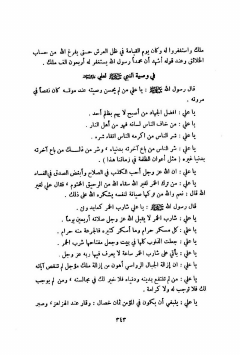 ملك واستغفروا له وكان يوم القيامة في ظل العرش حتى يفرغ الله من حساب
الخلائق وعند قوله أشهد أن محمداً رسول الله يستغفر له أربعون ألف ملك .
في وصية النبي ﷺ لعلي
قال رسول الله ﷺ : يا علي من لم يحسن وصيته عند موته كان نقصاً في
مروته .
يا علي : أفضل الجهاد من أصبح لا يهم بظلم أحد .
يا علي : من خاف الناس لسانه فهو من أهل النار .
يا علي : شر الناس من أكرمه الناس اتقاء شره .
يا علي : شر الناس من باع آخرته بدنياه وشر من ذلك من باع آخرته
بدنيا غيره ( مثل أعوان الظلمة في زماننا هذا ) .
يا علي : ان الله عز وجل أحب الكذب في الصلاح وأبغض الصدق في الفساد
يا علي : من ترك الخمر لغير الله سقاه الله من الرحيق المختوم فقال علي لغير
الله قال : نعم والله من تركها صيانة لنفسه يشكره الله على ذلك .
قال رسول الله ﷺ : يا علي شارب الخمر كعابد وثن .
يا علي : شارب الخمر لا يقبل الله عز وجل صلاته أربعين يوماً .
يا علي : كل مسكر حرام وما أسكر كثيره فالجرعة منه حرام .
يا علي : جعلت الذنوب كلها في بيت وجعل مفتاحها شرب الخمر .
يا علي : يأتي على شارب الخمر ساعة لا يعرف فيها ربه عز وجل .
يا علي : إن إزالة الجبال الرواسي أهون من إزالة ملك مؤجل لم تنقص أيامه
يا علي : من لم تنتفع بدينه ودنياه فلا خير لك في مجالسته ومن لم يوجب
لك فلا توجب له ولا كرامة .
يا علي : ينبغي أن يكون في المؤمن ثمان خصال : وقار عند الهزاهز وصبر
٣٤٣